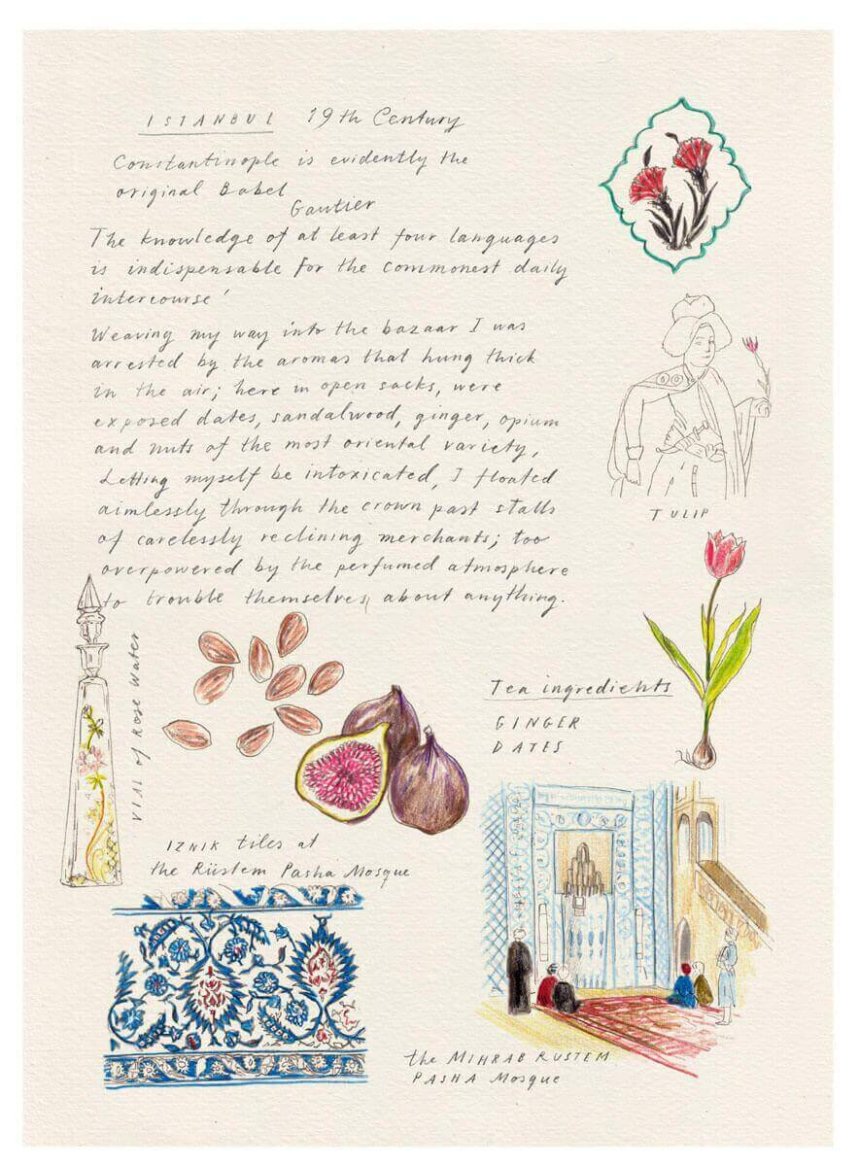 ISTANBUL 19th Century
Constantinople is evidently the
original Babel
Gautier
The knowledge of at least four languages
is indispensable for the commonest daily
intercourse'
Weaving my way into the bazaar I was
arrested by the aromas that hung thick
in the air; here in open sacks, were
exposed dates, sandalwood, ginger, opium
and nuts of the most oriental variety,
Letting myself be intoxicated, I floated
aimlessly through the crown past stalls
of carelessly reclining merchants; too
overpowered by the perfumed atmosphere
to trouble themselves, about anything.
TULIP
VIAL of Rose Water
Tea ingredients
GINGER
DATES
IZNIK tiles at
the Rüstem Pasha Mosque
the MIHRAB RUSTEM
PASHA Mosque